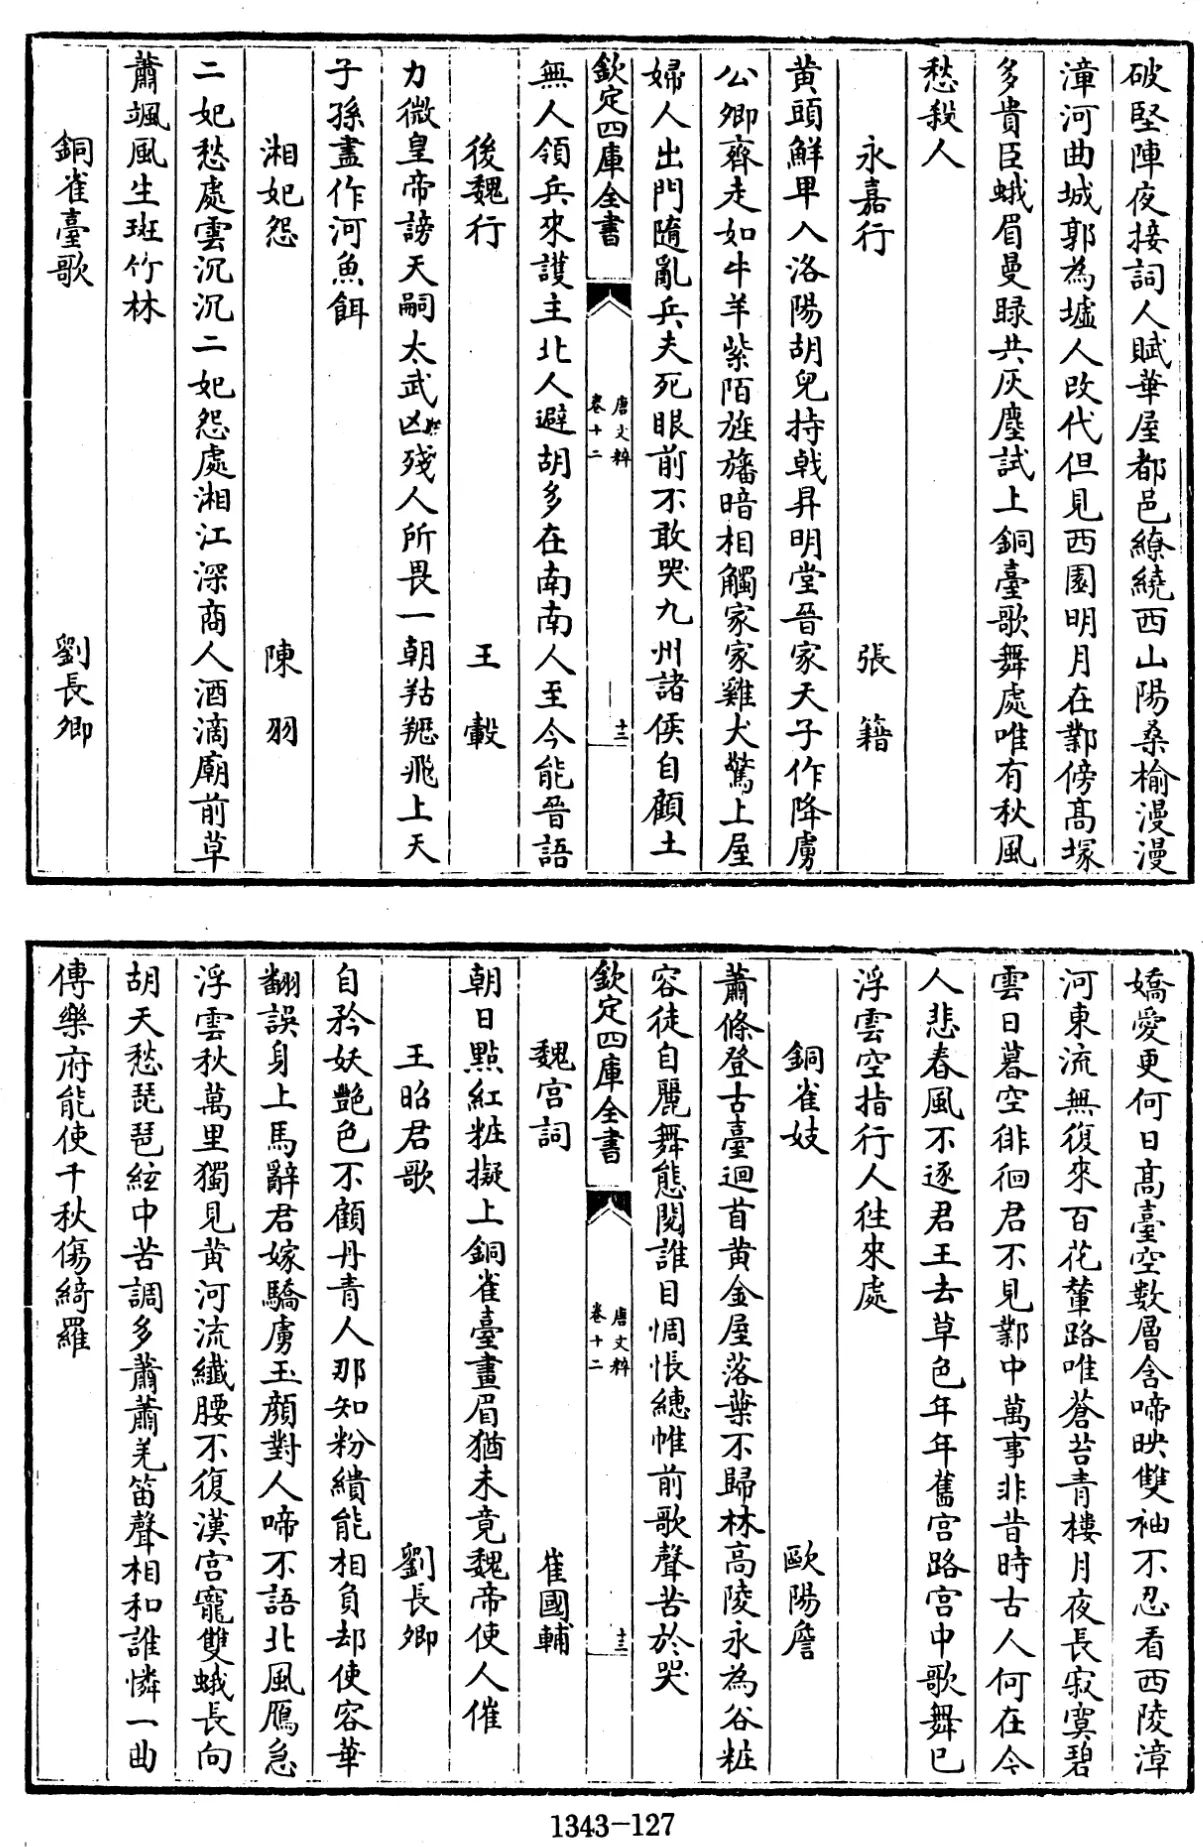 破堅陣夜接詞人賦華屋都邑繚繞西山陽桑榆漫漫
漳河曲城郭為墟人改代但見西園明月在鄴傍髙塚
多貴臣蛾眉曼睩共灰塵試上銅臺歌舞處唯有秋風
愁殺人
永嘉行 張籍
黄頭鮮卑入洛陽胡兒持戟昇明堂晉家天子作降虜
公卿齊走如牛羊紫陌旌旛暗相觸家家雞犬驚上屋
婦人出門隨亂兵夫死眼前不敢哭九州諸侯自顧土
欽定四庫全書 唐文粹 卷十二 十二
無人領兵來護主北人避胡多在南南人至今能晉語
後魏行 王轂
力微皇帝謗天嗣太武凶殘人所畏一朝羖䍽飛上天
子孫盡作河魚餌
湘妃怨 陳羽
二妃愁處雲沉沉二妃怨處湘江深商人酒滴廟前草
蕭颯風生斑竹林
銅雀臺歌 劉長卿
嬌愛更何日髙臺空數層含啼映雙袖不忍看西陵漳
河東流無復來百花輦路唯蒼苔青樓月夜長寂寞碧
雲日暮空徘徊君不見鄴中萬事非昔時古人何在今
人悲春風不逐君王去草色年年舊宫路宫中歌舞已
浮雲空指行人往來處
銅雀妓 歐陽詹
蕭條登古臺迴首黄金屋落葉不歸林高陵永為谷粧
容徒自麗舞態閱誰目惆悵繐帷前歌聲苦於哭
欽定四庫全書 唐文粹 卷十二 十三
魏宫詞 崔國輔
朝日㸃紅粧擬上銅雀臺畫眉猶未竟魏帝使人催
王昭君歌 劉長卿
自矜妖艶色不顧丹青人那知粉繢能相負却使容華
翻誤身上馬辭君嫁驕虜玉顔對人啼不語北風鴈急
浮雲秋萬里獨見黄河流纖腰不復漢宫寵雙蛾長向
胡天愁琵琶絃中苦調多蕭蕭羌笛聲相和誰憐一曲
傳樂府能使千秋傷綺羅
1343-127